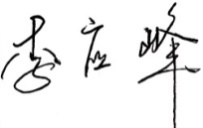 李应峰